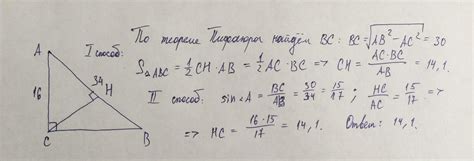 I способ: По теореме Пифагора найдём BC: BC = √(AB² - AC²) = 30
S△ABC = 1/2 CH · AB = 1/2 AC · BC => CH = AC·BC / AB = 14,1.
II способ: sin∠A = BC/AB = 30/34 = 15/17; HC/AC = 15/17 =>
=> HC = 16·15 / 17 = 14,1. Ответ: 14,1.
A
34
H
16
C
B